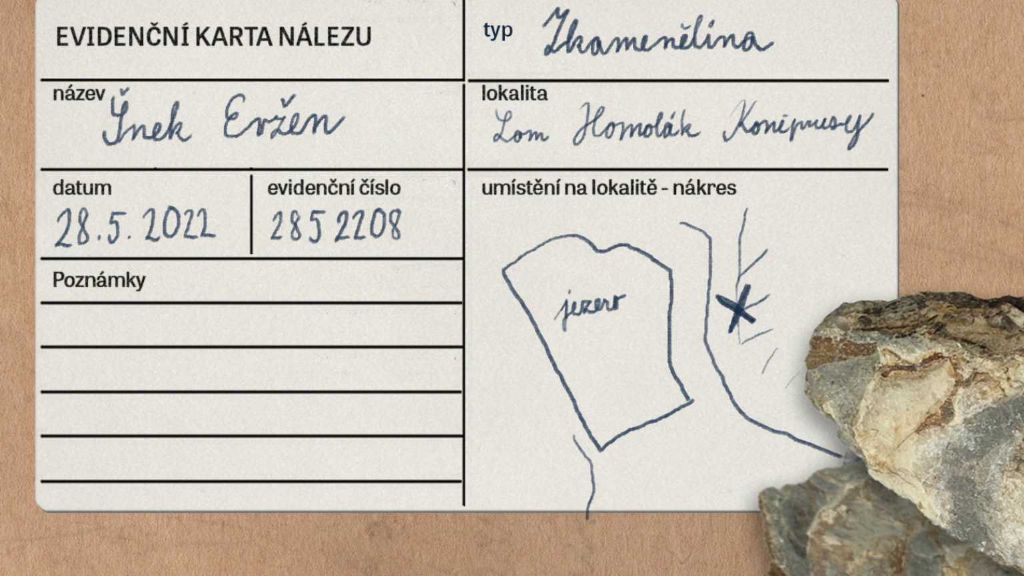 EVIDENČNÍ KARTA NÁLEZU
typ Zkamenělina
název Šnek Evžen
lokalita Lom Homolák Koněprusy
datum
28.5.2022
evidenční číslo
2852208
umístění na lokalitě - nákres
jezero
Poznámky